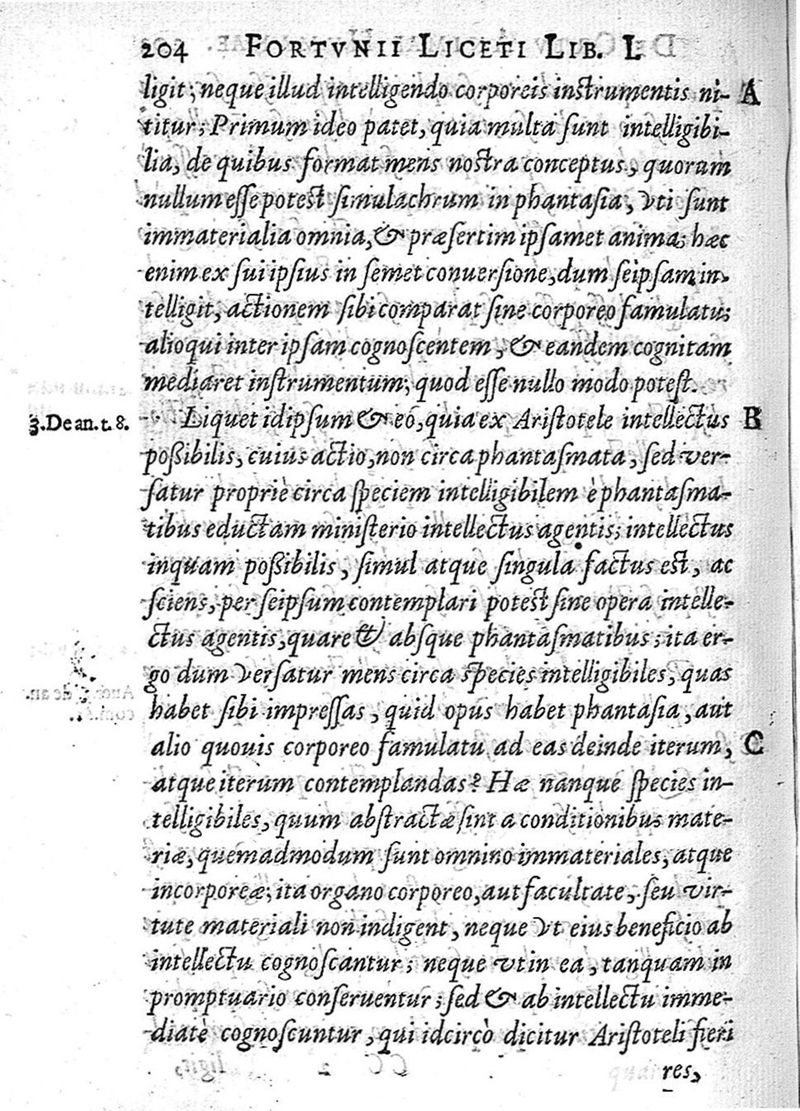 204 FORTVNII LICETI LIB. I.
ligit; neque illud intelligendo corporeis instrumentis ni- A
titur; Primum ideo patet, quia multa sunt intelligibi-
lia, de quibus format mens nostra conceptus, quorum
nullum esse potest simulachrum in phantasia, vti sunt
immaterialia omnia, & præsertim ipsamet anima; hæc
enim ex sui ipsius in semet conuersione, dum seipsam in-
telligit, actionem sibi comparat sine corporeo famulatu;
alioqui inter ipsam cognoscentem, & eandem cognitam
mediaret instrumentum; quod esse nullo modo potest.
3. De an. t. 8. Liquet idipsum & eò, quia ex Aristotele intellectus B
possibilis, cuius actio, non circa phantasmata, sed ver-
satur propriè circa speciem intelligibilem è phantasma-
tibus eductam ministerio intellectus agentis; intellectus
inquam possibilis, simul atque singula factus est, ac
sciens, per seipsum contemplari potest sine opera intelle-
ctus agentis, quare & absque phantasmatibus; ita er-
go dum versatur mens circa species intelligibiles, quas
habet sibi impressas, quid opus habet phantasia, aut
alio quouis corporeo famulatu ad eas deinde iterum, C
atque iterum contemplandas? Hæ nanque species in-
telligibiles, quum abstractæ sint a conditionibus mate-
riæ, quemadmodum sunt omnino immateriales, atque
incorporeæ; ita organo corporeo, aut facultate, seu vir-
tute materiali non indigent, neque vt eius beneficio ab
intellectu cognoscantur; neque vt in ea, tanquam in
promptuario conseruentur; sed & ab intellectu imme-
diatè cognoscuntur, qui idcircò dicitur Aristoteli fieri
res,